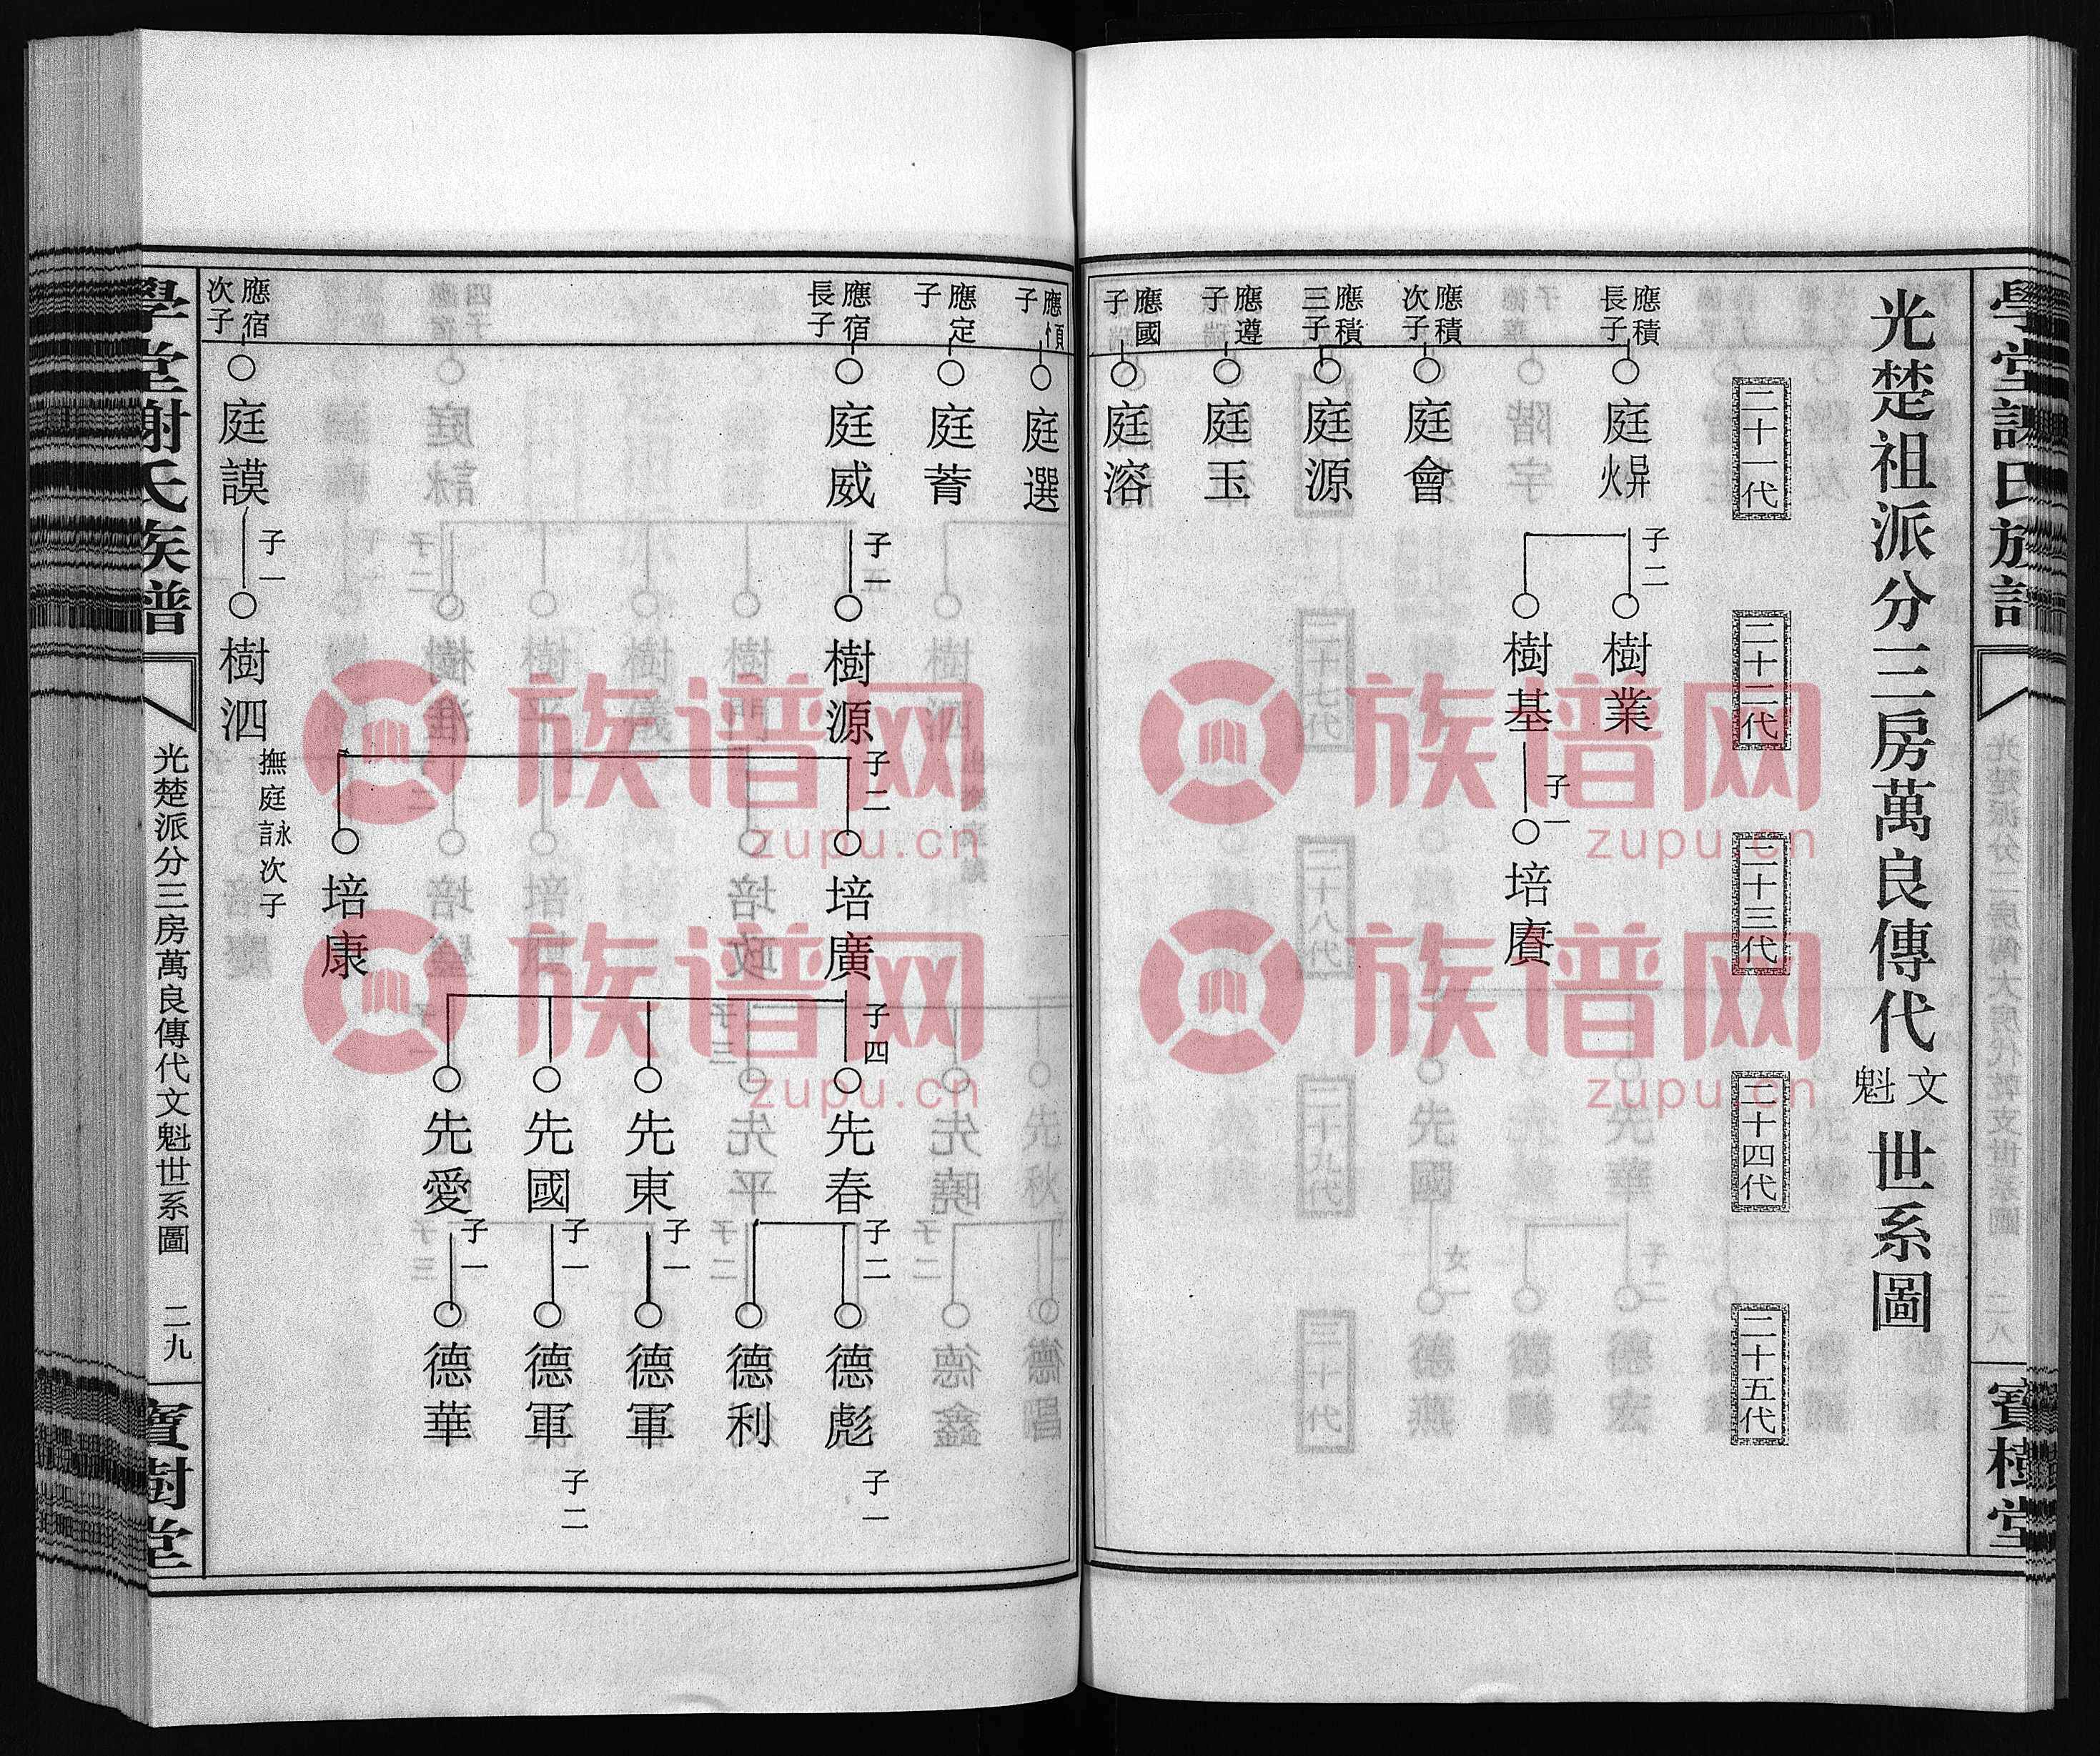 光楚祖派分三房萬良傳代文魁世系圖
二十一代
二十二代
二十三代
二十四代
二十五代
應積長子
庭㷣
子二
樹業
樹基
子一
培賡
應積次子
庭會
應積三子
庭源
應遵子
庭玉
應國子
庭溶
寶樹堂
子
庭選
應定子
庭蒈
應宿長子
庭威
子一
樹源
子二
培廣
子四
先春
子二
德彪
子一
德利
先東
子一
德軍
先國
子一
德軍
子二
先愛
子一
德華
培康
應宿次子
庭謨
子一
樹泗
撫庭詠次子
學堂謝氏族譜
光楚派分三房萬良傳代文魁世系圖
二九
寶樹堂
族谱网
zupu.cn
族谱网
zupu.cn
族谱网
zupu.cn
族谱网
zupu.cn